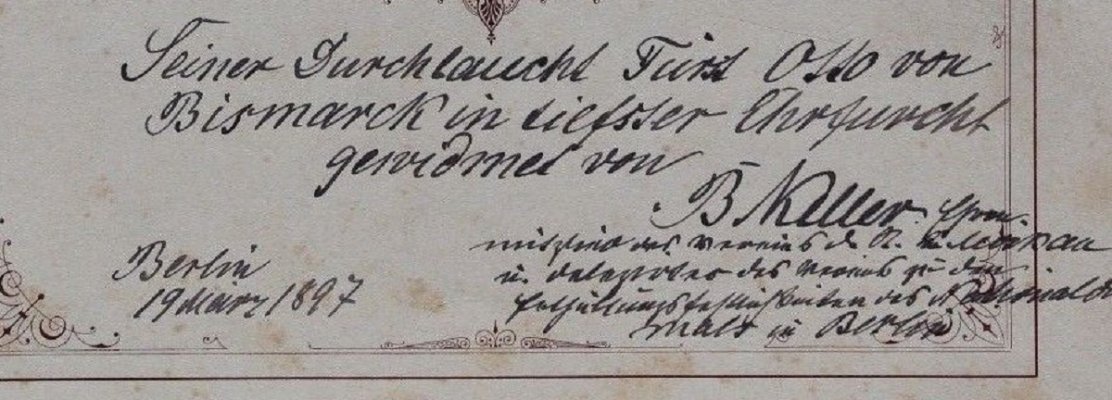 Seiner Durchlaucht Fürst Otto von
Bismarck in tiefster Ehrfurcht
gewidmet von
B Keller. Ehren-
mitglied des Vereins d. K.
u. Delegirter des Vereins zu den
Enthüllungsfestlichkeiten des Nationalden
mals in Berlin
Berlin
19 März 1897